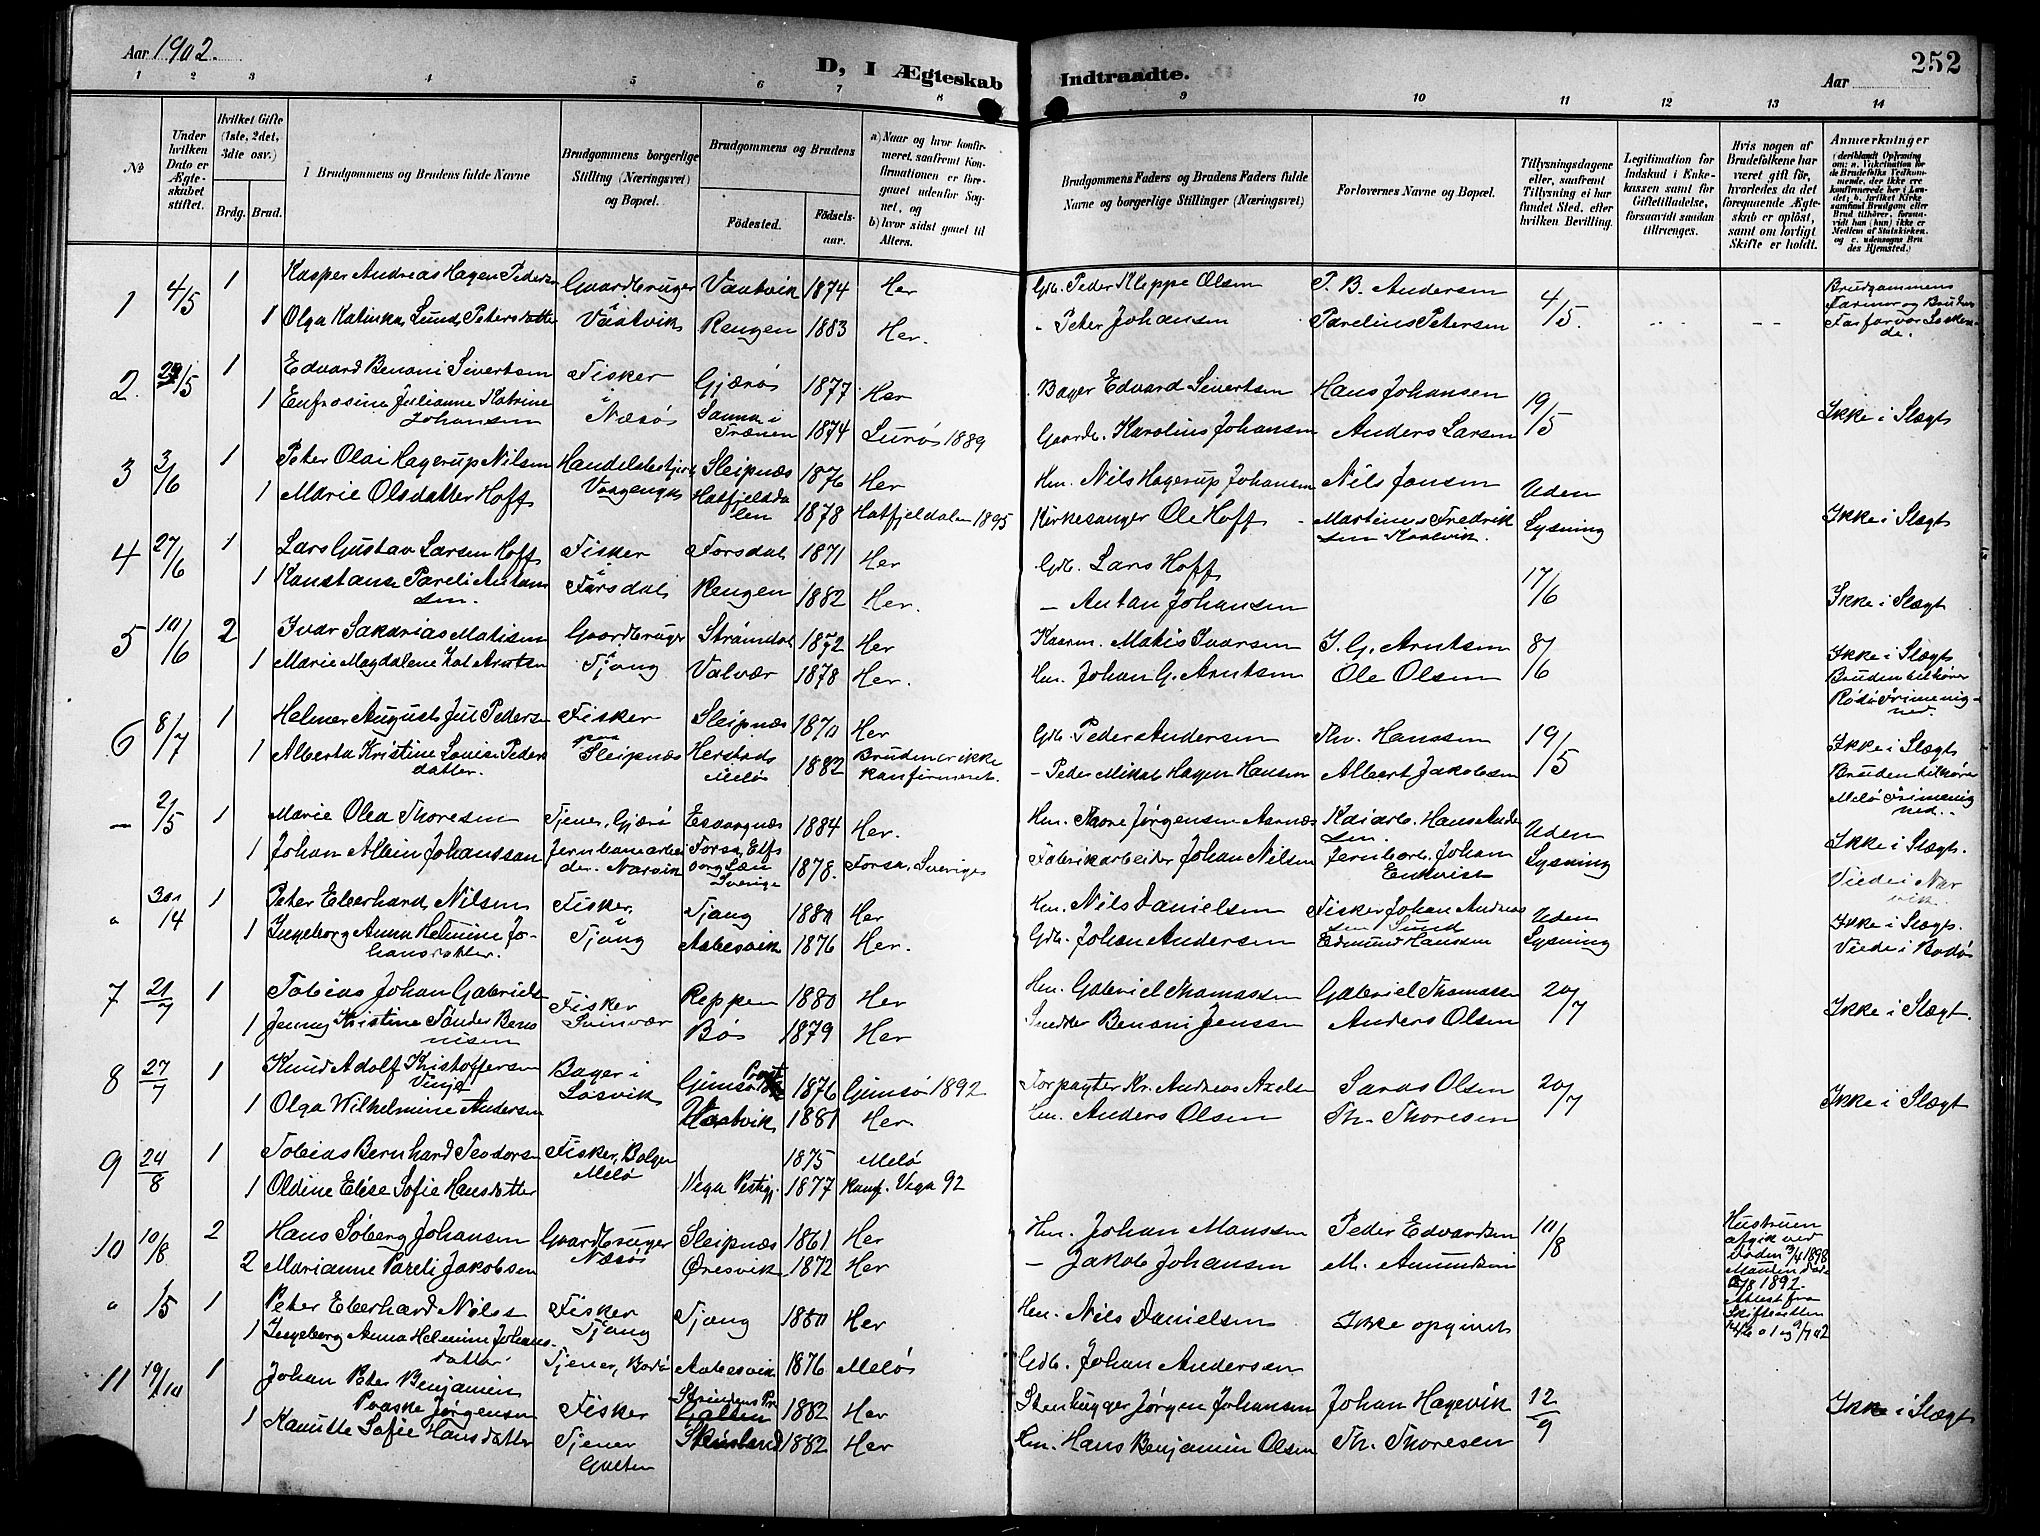 Aar 1902.
D, I Ægteskab Indtraadte.
Aar
252
1 2 3 4 5 6 7 8 9 10 11 12 13 14
№
Under hvilken Dato er Ægteskabet stiftet.
Hvilket Gifte (1ste, 2det, 3die osv.)
Brdg. Brud.
Brudgommens og Brudens fulde Navne
Brudgommens borgerlige Stilling (Næringsvei) og Bopæl.
Brudgommens og Brudens
Födested.
Födselsaar.
a) Naar og hvor konfirmeret, saafremt Konfirmationen er foregaaet udenfor Sognet, og
b) hvor sidst gaaet til Alters.
Brudgommens Faders og Brudens Faders fulde Navne og borgerlige Stillinger (Næringsvei)
Forlovernes Navne og Bopæl.
Tillysningsdagene eller, saafremt Tillysning ei har fundet Sted, efter hvilken Bevilling.
Legitimation for Indskud i Enkekassen samt for Giftetilladelse, forsaavidt saadan tiltrænges.
Hvis nogen af Brudefolkene har været gift för, hvorledes da det foregaaende Ægteskab er oplöst, samt om lovligt Skifte er holdt.
Anmærkninger
1 4/5 1 Kasper Andreas Hagen Peders Gaardbruger Vaatvik 1874 Her Gdb. Peder Kleppe Olsen P. B. Andersen 4/5 Brudgommens Farmor og Brudens Farfar var Søskende.
1 Olga Katinka Lund Petersdatter i Vaatvik Rengen 1883 Her. - Peter Johansen Parelius Petersen
2. 29/5 1 Edvard Benoni Sivertsen Fisker Gjærø 1877 Her Bager Edvard Sivertsen Hans Johansen 19/5
1 Enfrosine Julianne Katrine Johansen i Næsø Sanna i Trænen 1874 Lurø 1889 Gaardb. Karolius Johansen Anders Larsen Ikke i Slægt
3 3/6 1 Peter Olai Hagerup Nilsen Handelsbestjer Sleipnæs 1876 Her Hm. Nils Hagerup Johansen Nils Jensen Uden
1 Marie Olsdatter Hoff Vaagengen Hatfjeldalen 1878 Hatfjeldalen 1895 Kirkesanger Ole Hoff - Martinus Fredriksen Kaalvik. Lysning Ikke i Slægt
4 27/6 1 Lars Gustav Larsen Hoff Fisker Forsdal 1871 Her Gdb. Lars Hoff 17/6
1 Konstanse Pareli Antonsen. i Forsdal Rengen 1882 Her. - Anton Johansen Ikke i Slægt
5 10/6 2 Ivar Sakarias Matisen Gaardbruger Strømdal 1872 Her Kaarm. Matis Ivarsen J. G. Arntsen 8/6
1 Marie Magdalene Arntsen i Tjong Valvær 1878 Her. Hm. Johan G. Arntsen Ole Olsen Ikke i Slægt Bruden tilhører Rødø Frimenighed.
6 8/7 1 Helmer August Jul Peders Fisker Sleipnæs 1870 Her Gdb. Peder Andersen Thv. Hanssen 19/5
1 Alberta Kristine Lovise Pedersdatter. paa Sleipnæs Herstad i Melø 1882 Bruden er ikke konfirmeret. - Peder Mikal Hagen Hansen Albert Jakobsen Ikke i Slægt Bruden tilhører Melø Frimenighed.
- 2/5 1 Marie Olea Thoresen Tjener, Gjærø Esvargnæs 1884 Her. Hm. Thore Jørgensen Aarnæs Kaiarb. Hans Andersen Uden
1 Johan Albin Johanssan Jernbanearbeider. Narvik Forsa, Elfsborgs Læn Sverige 1878. Forsa, Sverige Fabrikarbeider Johan Nilsen Jernbarb. Johan Enkvist Lysning Ikke i Slægt. Viede i Narvik.
" 30/14 1 Peter Eberhard Nilsen Fisker, Tjong 1880 Her Hm. Nils Danielsen Fisker Johan Andreassen Sund Uden Ikke i Slægt.
1 Ingeborg Anna Helmine Johansdatter. i Tjong Aabesvik 1876 Her. Gdb. Johan Andersen Edmund Hanssen Lysning Viede i Bodø
7 21/7 1 Tobias Johan Gabriels Fisker Reppen 1880 Her Hm. Gabriel Thomassen Gabriel Thomassen 20/7 Ikke i Slægt.
1 Jenny Kristine Sønder Bennisen Svinvær Bøs 1879 Her Snedker Benoni Jenssen Anders Olsen
8 27/7 1 Knud Adolf Kristoffersen Vinje Bager i Gimsø Prgd 1876 Gimsø 1892 Forpagter Kr. Andreas Axelsen Saras Olsen 20/7
1 Olga Wilhelmine Andersen Løsvik Vaatvik 1881 Her. Hm. Anders Olsen Th. Thoresen Ikke i Slægt
9 24/8 1 Tobias Bernhard Teodors Fisker, Bolgen 1875 Melø
1 Oldine Elise Sofie Hansdatter Melø Vega Prstgj. 1877 Konf. Vega 92
10 10/8 2 Hans Søberg Johansen Gaardbruger Sleipnæs 1861 Her Hm. Johan Monssen Peder Edvardsen 10/8 Hustruen afgik ved Døden 9/4 1898 Manden døde 1892. Attest fra Skifteretten
2 Marianne Pareli Jakobsen Næsø Øresvik 1872 Her - Jakob Johansen M. Amundsen
" /5 1 Peter Eberhard Nils Fisker Tjong 1880 Her Hm. Nils Danielsen Ikke opgivet
1 Ingeborg Anna Helmine Johansdatter. Tjong Tjener, Bodø Aabesvik 1876 Melø Gdb. Johan Andersen
11 19/10 1 Johan Peter Benjamin Paaske Jørgensen Fisker Galten 1882 Her Stenhugger Jørgen Johansen Johan Hagevik 12/9 Ikke i Slægt
1 Kanutte Sofie Hansdatter Tjener Galten Skeisland 1882 Her Hm. Hans Benjamin Olsen Th. Thoresen